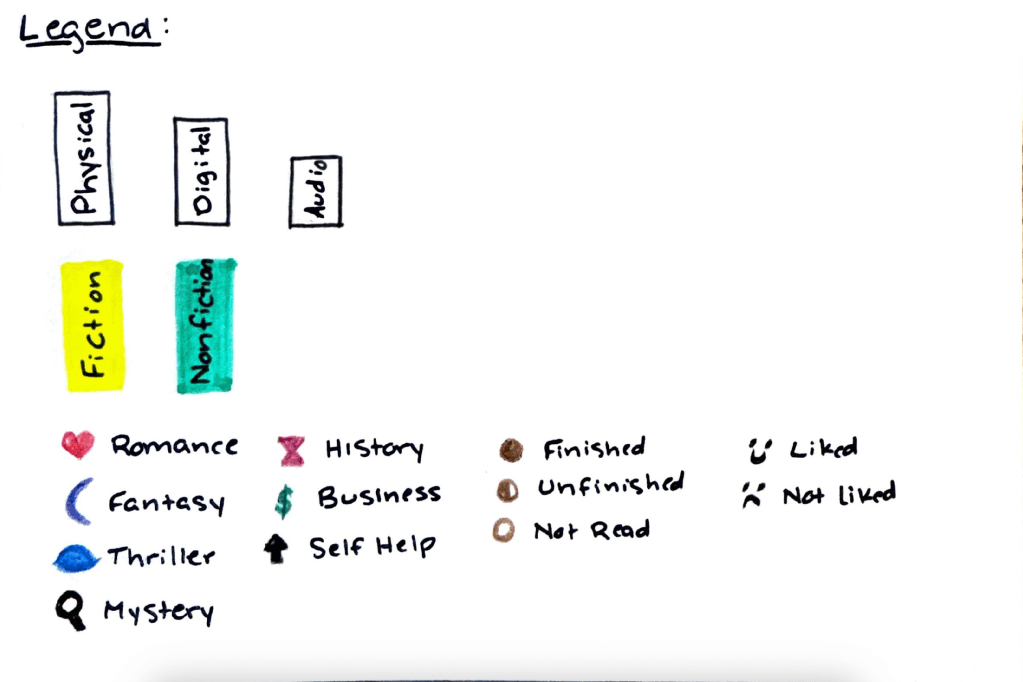 Legend:
Physical
Digital
Audio
Fiction
Nonfiction
Romance
Fantasy
Thriller
Mystery
History
$ Business
Self Help
Finished
Unfinished
Not Read
Liked
Not liked